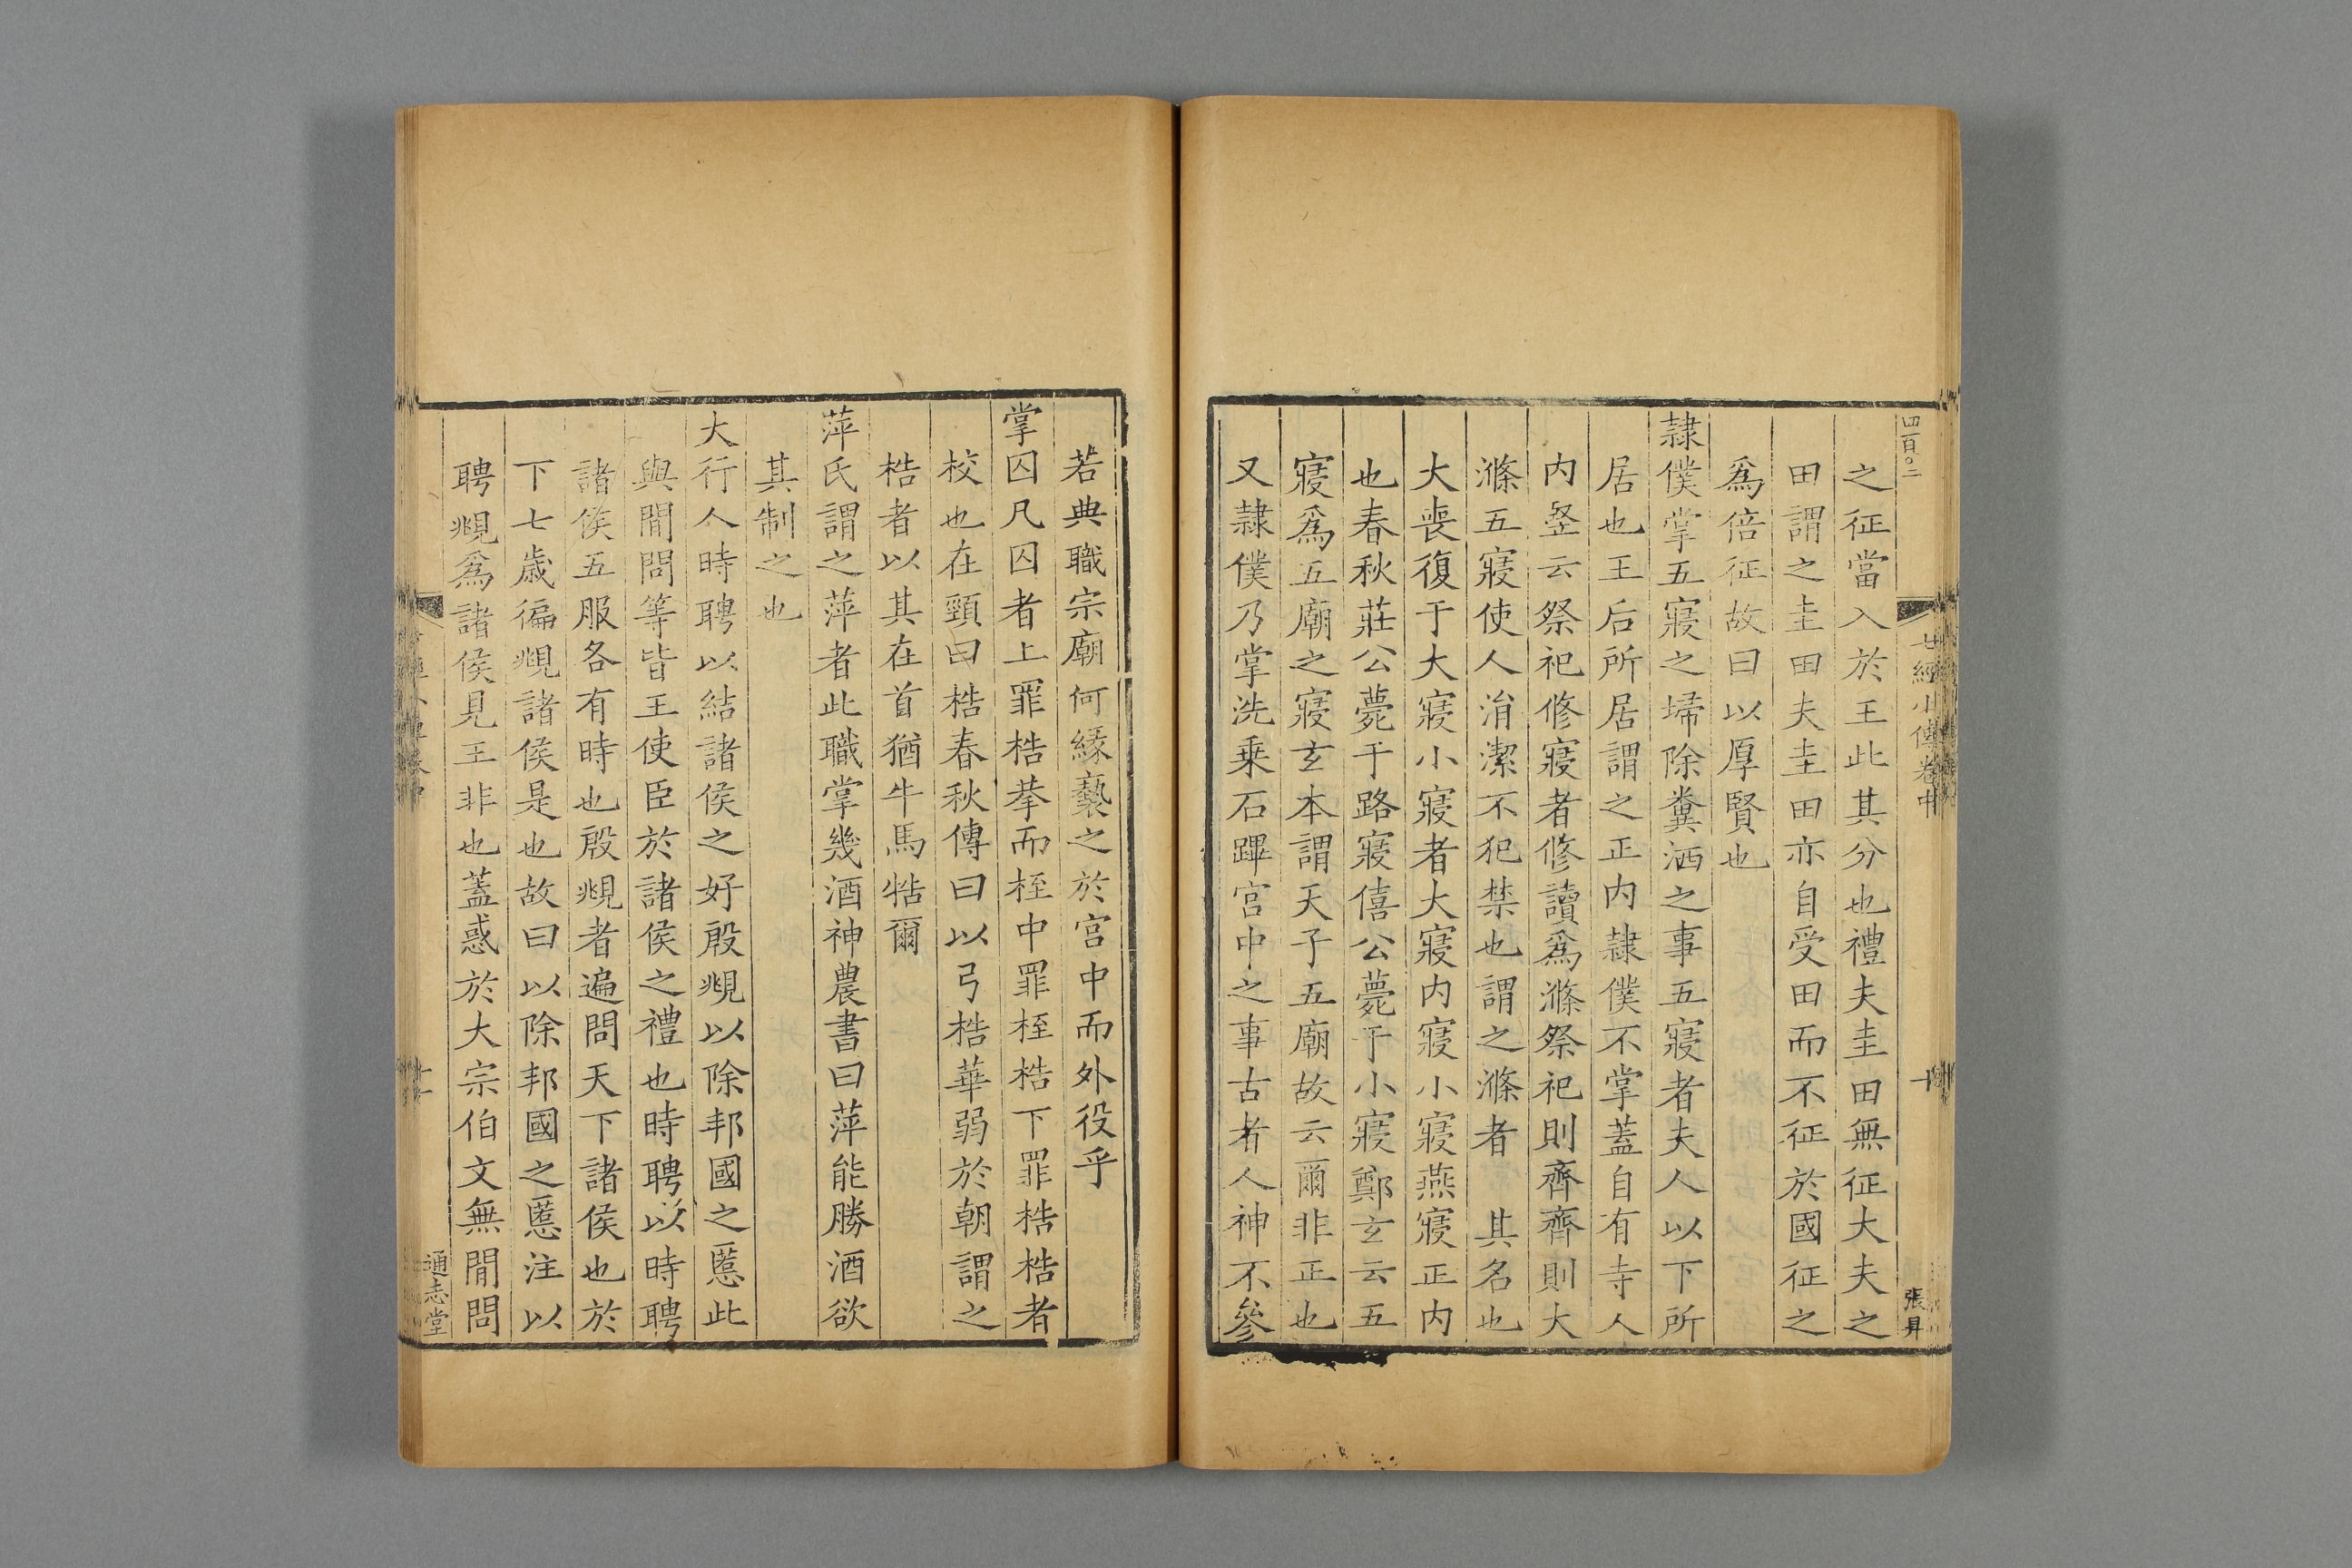 四百〇二
七經小傳卷中
十
張昇
之征當入於王此其分也禮夫圭田無征大夫之
田謂之圭田夫圭田亦自受田而不征於國征之
爲倍征故曰以厚賢也
隷僕掌五寢之埽除糞洒之事五寢者夫人以下所
居也王后所居謂之正内隷僕不掌蓋自有寺人
内豎云祭祀修寢者修讀爲滌祭祀則齊齊則大
滌五寢使人涓潔不犯禁也謂之滌者 其名也
大喪復于大寢小寢者大寢内寢小寢燕寢正内
也春秋莊公薨于路寢僖公薨于小寢鄭玄云五
寢爲五廟之寢玄本謂天子五廟故云爾非正也
又隷僕乃掌洗乗石蹕宮中之事古者人神不參
若典職宗廟何緣褻之於宮中而外役乎
掌囚凡囚者上罪梏拲而桎中罪桎梏下罪梏梏者
校也在頸曰梏春秋傳曰以弓梏華弱於朝謂之
梏者以其在首猶牛馬牿爾
萍氏謂之萍者此職掌幾酒神農書曰萍能勝酒欲
其制之也
大行人時聘以結諸侯之好殷覜以除邦國之慝此
與閒問等皆王使臣於諸侯之禮也時聘以時聘
諸侯五服各有時也殷覜者遍問天下諸侯也於
下七歲徧覜諸侯是也故曰以除邦國之慝注以
聘覜爲諸侯見王非也蓋惑於大宗伯文無閒問
十一
通志堂